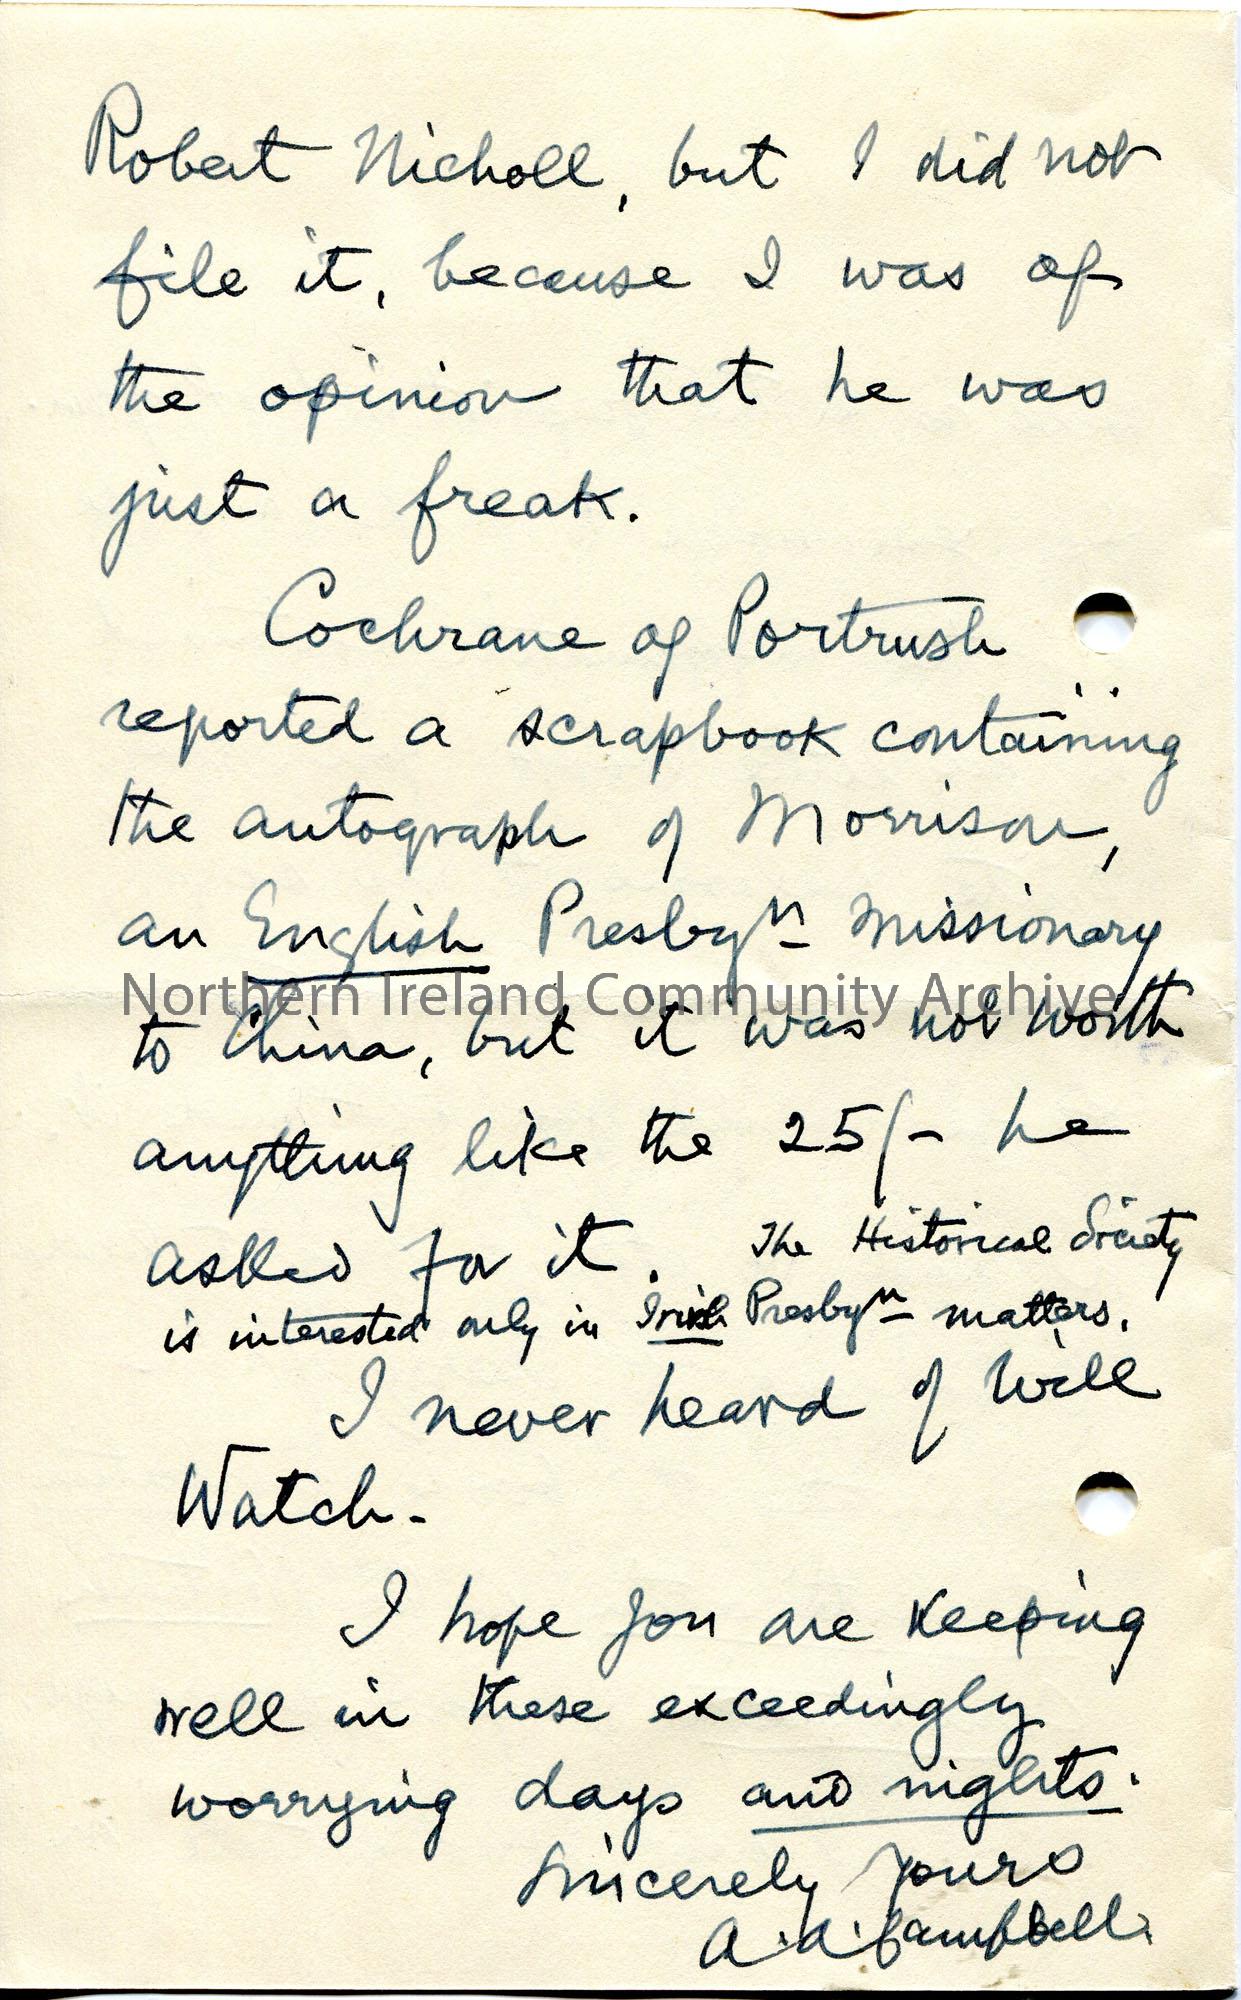 Robert Nicholl, but I did not
file it, because I was of
the opinion that he was
just a freak.
Cochrane of Portrush
reported a scrapbook containing
the autograph of Morrison,
an English Presbyn missionary
Northern Ireland Community Archive
to China, but it was not worth
anything like the 25/- he
asked for it. The Historical Society
is interested only in Irish Presbyn matters.
I never heard of Will
Watch.
I hope you are keeping
well in these exceedingly
worrying days and nights.
Sincerely yours
A. A. Campbell.